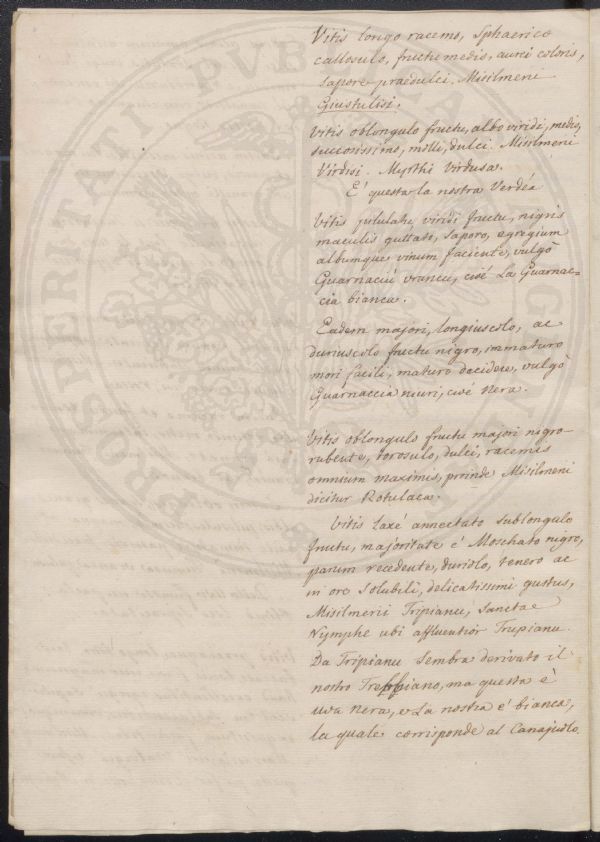 Vitis longo racemo, Sphaerico
callosulo, fructu medio, aurei coloris,
sapore praedulci. Misilmeni
Giustulisi.
Vitis oblongulo fructu, albo viridi, medio,
succosissimo, molli, dulci. Misilmeni
Virdisi. Myrthi Virdusa.
E' questa la nostra Verdéa
Vitis pilulatu, viridi fructu, nigris
maculis guttati, saporo, egregium
albumque vinum faciente, vulgò
Guarnaciu vrancu, cioé La Guarnac=
cia bianca.
Eadem majori, longiuscolo, ac
duriuscolo fructu nigro, immaturo
mori facili, maturo decidere, vulgò
Guarnaccia niuri, cioé Nera.
Vitis oblongulo fructu majori nigro
rubente, torosulo, dulci, racemis
omnium maximis, proinde Misilmeni
dicitur Rotulaca.
Vitis laxé annectato sublongulo
fructu, majoritate é Moschato nigro,
parum recedente, duriolo, tenero ac
in ore solubili, delicatissimi gustus,
Misilmerii Tripianu, Sanctae
Nymphe ubi affluentior Trupianu.
Da Tripianu Sembra derivato il
nostro Trebbiano, ma questa è
uva nera, e La nostra e' bianca,
la quale corrisponde al Canajuolo.
PVB